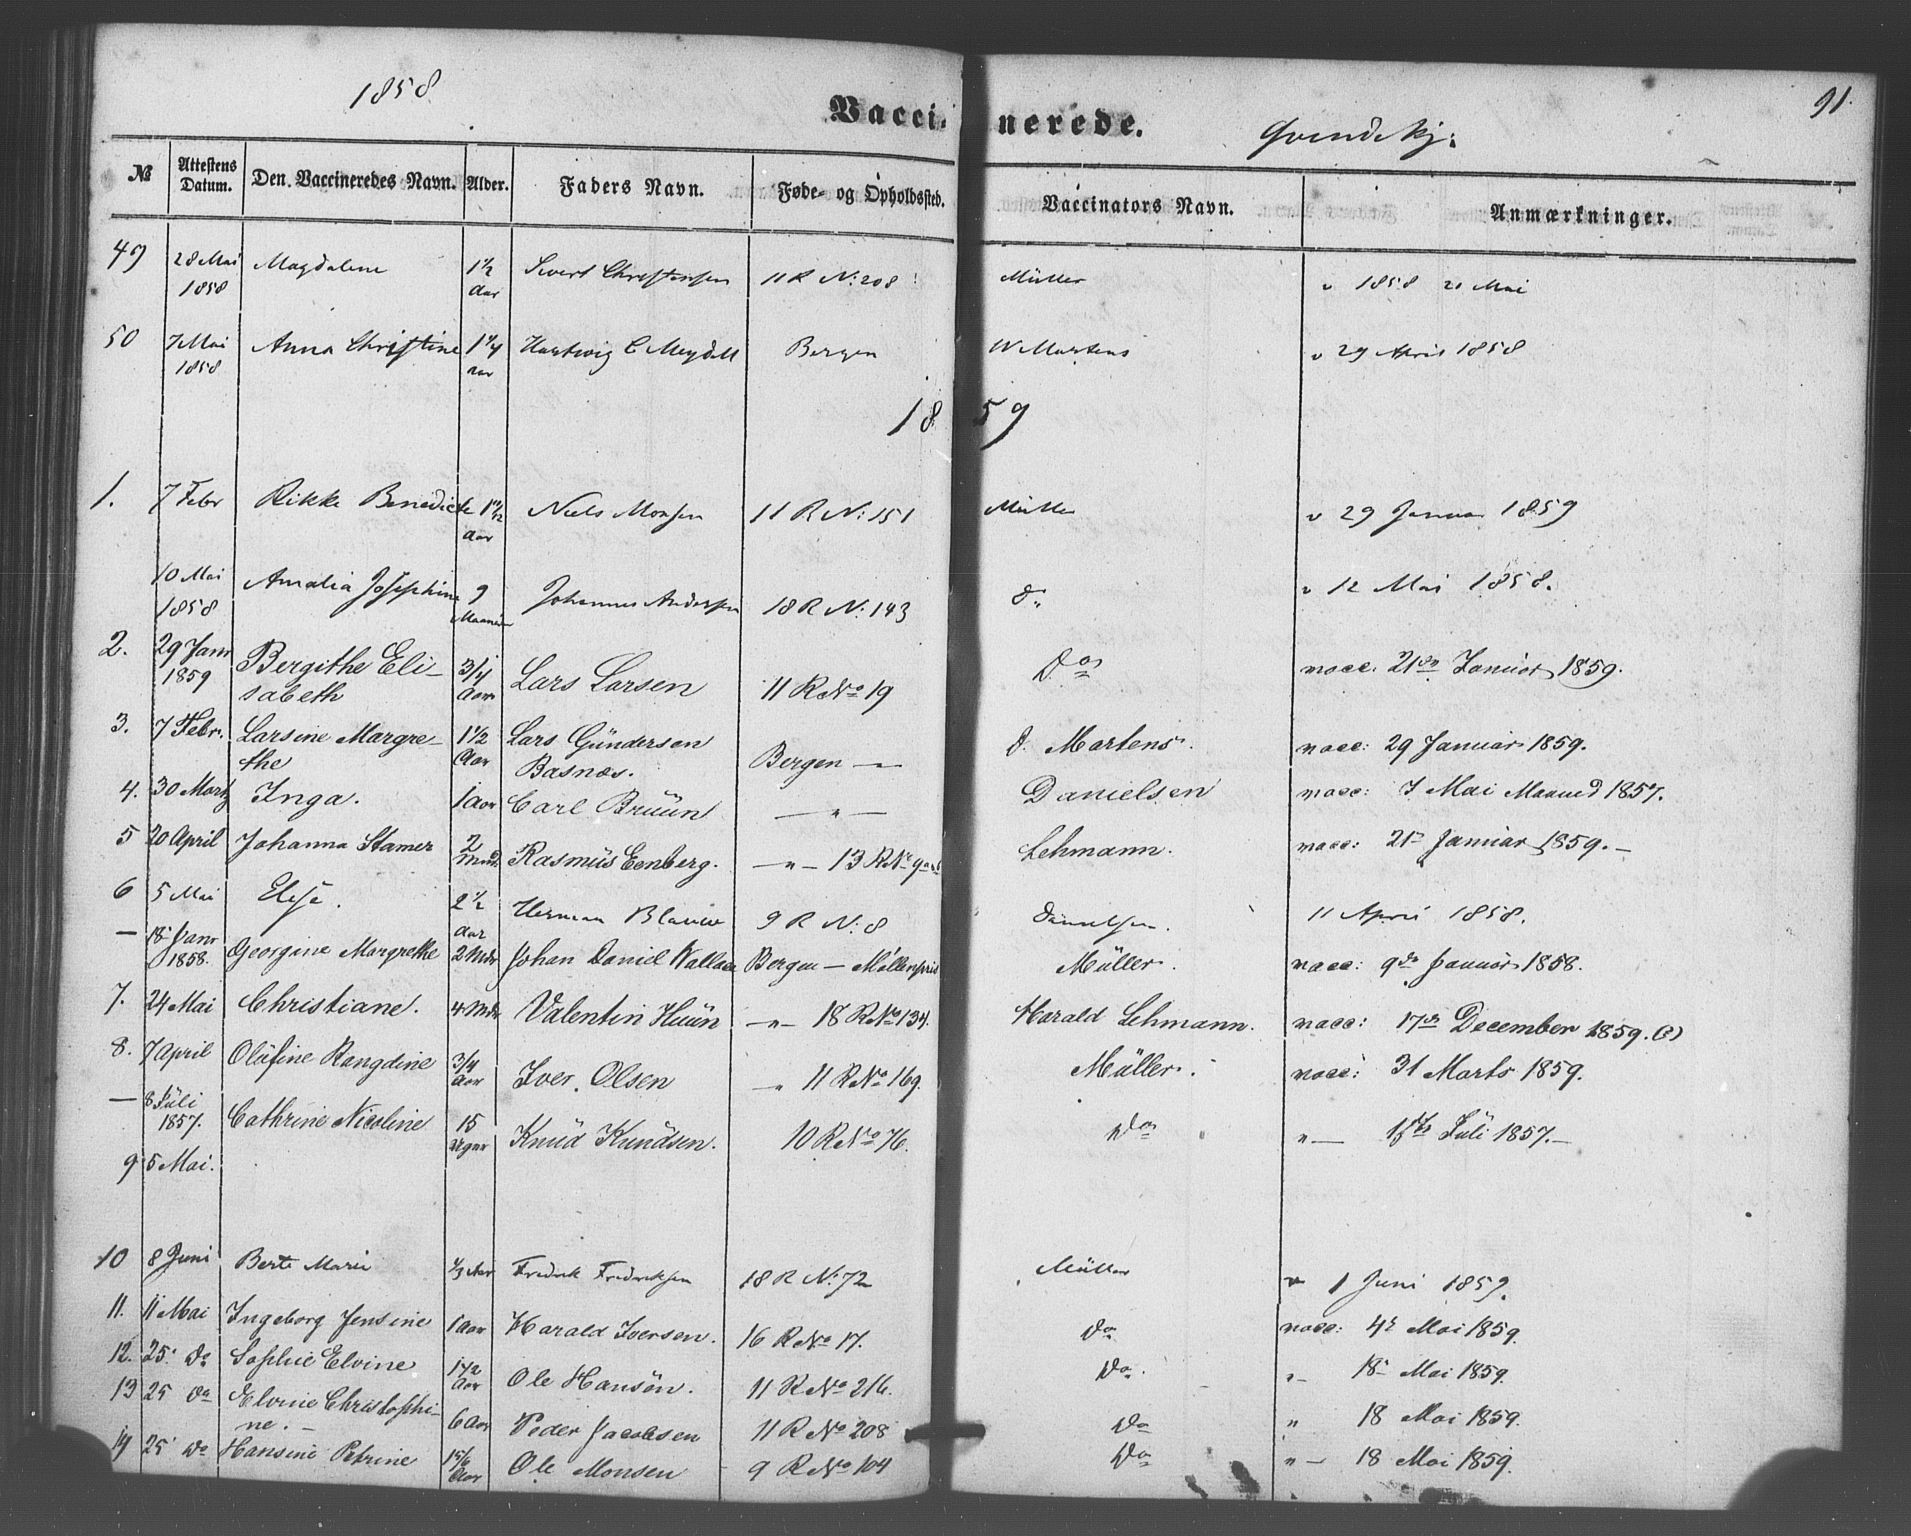 1858
91.
Vaccinerede. Qvindekj:
№ Attestens Datum. Den Vaccineredes Navn. Alder. Faders Navn. Føde- og Opholdssted. Vaccinators Navn. Anmærkninger.
49 28 Mai 1858 Magdalene 1½ Aar Sivert Christensen 11 R N: 208 Müller v 1858 21 Mai
50 7 Mai 1858 Anna Christine 1¼ aar Hartwig C Meydell Bergen W Martens v 29 April 1858
1859
1. 7 Febr Rikke Benedicte Aar Niels Monsen 11 R N: 151 Müller v 29 Januar 1859
10 Mai 1858 Amalia Josephine 9 Maaneder Johannes Andersen 18 R N: 143 do v 12 Mai 1858.
2. 29 Janr 1859 Bergithe Eli-
sabeth 3/4 Aar Lars Larsen 11 R No 19 Do vacc. 21de Januar 1859.
3. 7 Febr. Larsine Margre-
the 1½ Aar Lars Gündersen
Basnæs. Bergen — D. Martens. vacc: 29 Januar 1859.
4. 30 Marts Inga. 1 Aar Carl Brüün — " — Danielsen vacc: 7 Mai Maaned 1857.
5 20 April Johanna Stamer 2 Mnd. Rasmüs Eenberg. — " — 13 R No 9 Lehmann. vacc: 21 Januar 1859. —
6 5 Mai Elise. 2½ Aar Herman 9 R N: 8 Danielsen. 11 April 1858.
— 18 Janr 1858. Georgine Margrethe 2 Mdr Johan Daniel Wallace Bergen — Möllenpriis Müller. vacc: 9de Januar 1858.
7. 24 Mai Christiane. 4 Mdr Valentin Huün — " — 18 R No 134. Harald Lehmann. vacc: 17de December 1859. (?)
8. 7 April Olüfine Rangdine 3/4 Aar Iver Olsen — " 11 R No 169. Müller. vacc: 31 Marts 1859.
— 8 Jüli 1857. Cathrine Nicoline 15 Uger Knüd Knudsen. 10 R No 76. Do " — 1ste Jüli 1857. —
9 5 Mai.
10 8 Juni Berte Marie Aar Fredrik Fredriksen 18 R N: 72 Müller v 1 Juni 1859.
11. 11 Mai Ingeborg Jensine 1 Aar Harald Iversen. 16 R No 17. Do vacc: 4de Mai 1859.
12. 25 Do Sophie Elvine 1½ Aar Ole Hansen. 11 R No 216. Do. " — 18 Mai 1859.
13 25 Do Elvine Christophi-
ne. — 6 Aar Peder Jacobsen 11 R No 208 Do " 18 Mai 1859.
14 25 Do Hansine Petrine Aar Ole Monsen 9 R No 104 Do " — 18 Mai 1859.